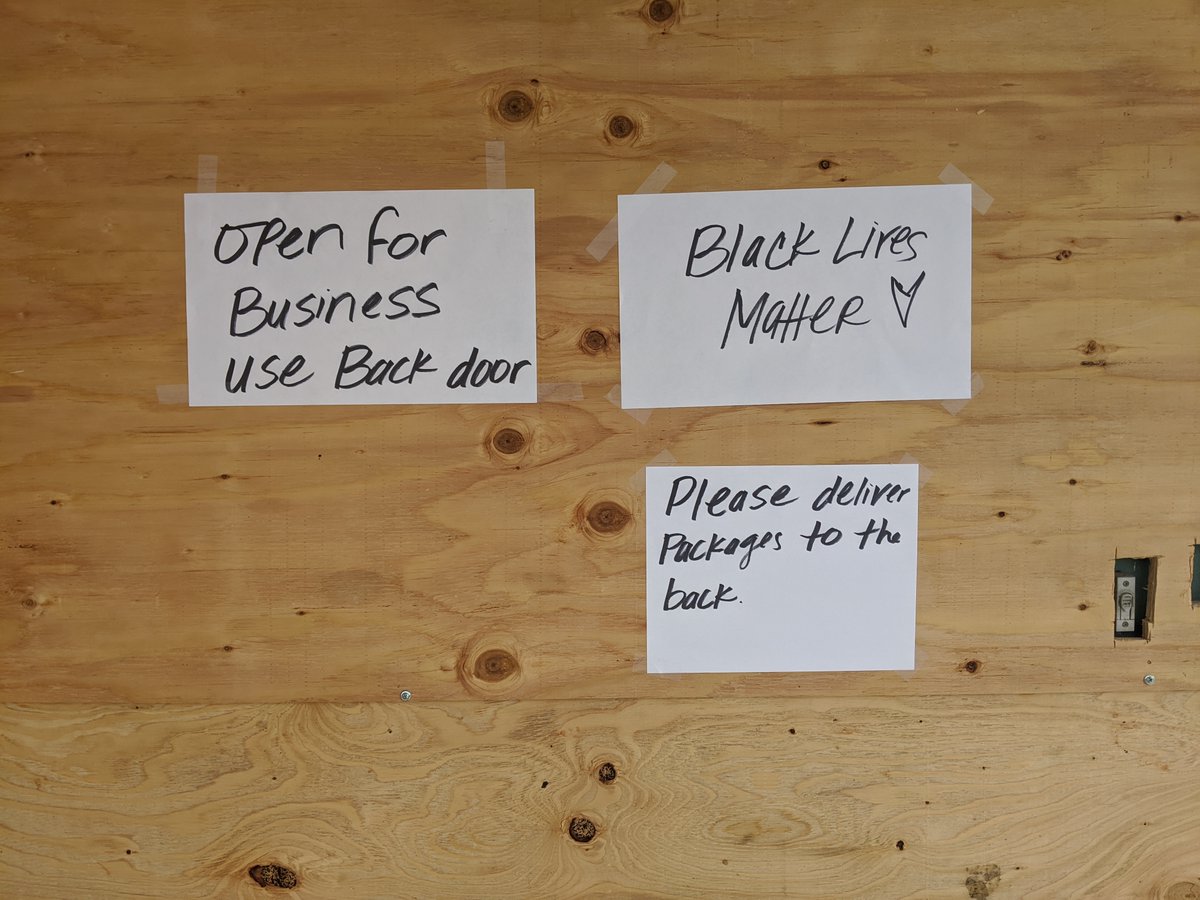 Open for
Business
use Back door
Black Lives
Matter
Please deliver
Packages to the
back.